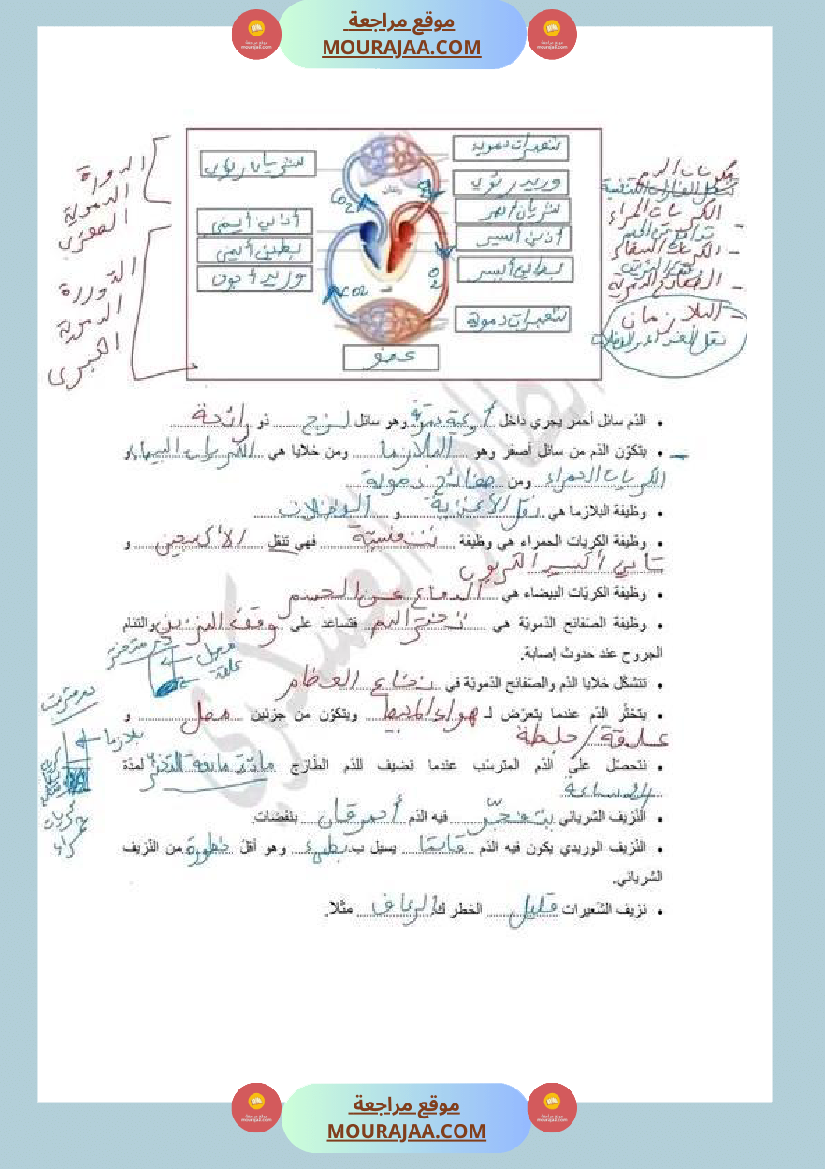 موقع مراجعة
MOURAJAA.COM
شعيرات دموية
شريان رئوي
وريد رئوي
شريان ابهر
أذين أيمن
أذين أيسر
بطين أيمن
بطين أيسر
وريد أجوف
شعيرات دموية
عضو
CO2
O2
CO2
الدورة
الدموية
الصغرى
الدورة
الدموية
الكبرى
مكونات الدم
الكريات الحمراء
الكريات البيضاء
الصفائح الدموية
البلازما
• الدّم سائل أحمر يجري داخل أوعية دموية وهو سائل لزج ذو رائحة
• يتكوّن الدّم من سائل أصفر وهو البلازما ومن خلايا هي الكريات البيضاء و
الكريات الحمراء ومن صفائح دموية
• وظيفة البلازما هي نقل الأغذية و الفضلات
• وظيفة الكريات الحمراء هي وظيفة تنفسية فهي تنقل الأكسجين و
ثاني أكسيد الكربون
• وظيفة الكريّات البيضاء هي الدفاع عن الجسم
• وظيفة الصّفائح الدّمويّة هي تخثر الدم فتساعد على وقف النزيف والتئام
الجروح عند حدوث إصابة.
• تتشكّل خلايا الدّم والصّفائح الدّمويّة في نخاع العظام
• يتخثّر الدّم عندما يتعرّض لـ هواء المحيط ويتكوّن من جزئين مصل و
علقة / جلطة
• نتحصّل على الدّم المترسّب عندما نضيف للدّم الطّازج مادة مانعة التخثر لمدّة
24 ساعة
• النّزيف الشرياني يتفجّر فيه الدّم أحمر قان بنفضات.
• النّزيف الوريدي يكون فيه الدّم قاتما يسيل ب بطيء وهو أقلّ خطورة من النّزيف
الشرياني.
• نزيف الشّعيرات قليل الخطر ك الرعاف مثلا.
دم متخثر
مصل
علقة
دم مترسب
بلازما
موقع مراجعة
MOURAJAA.COM